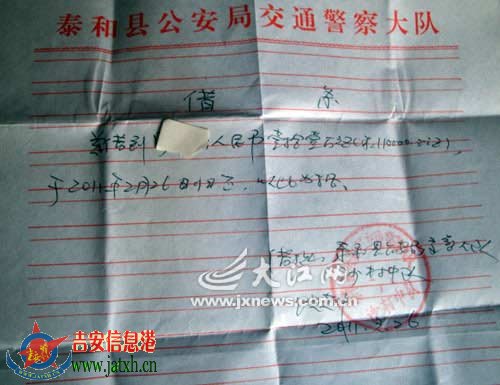 泰和县公安局交通警察大队
借 条
兹借到 人民币壹拾壹万元(¥110000.00元),
于2011年2月26日归还,以此为据。
借款人:泰和县公安局交警大队
沙村中队
2011.2.26
大江网
www.jxnews.com.cn
吉安信息港
www.jatxh.cn